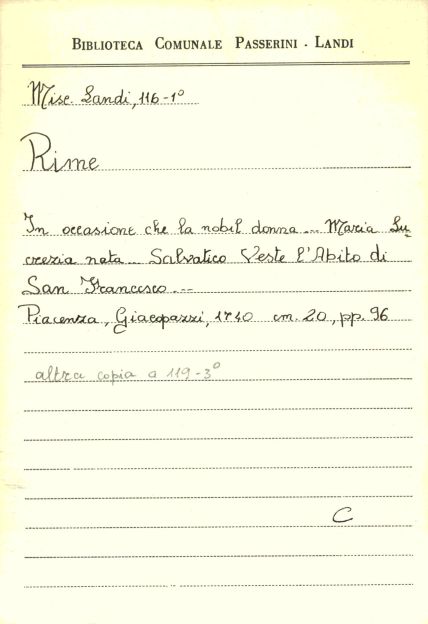 BIBLIOTECA COMUNALE PASSERINI - LANDI
Misc. Landi, 116-1°
Rime
In occasione che la nobil donna... Maria Lu-
crezia nata... Salvatico Veste l'Abito di
San Francesco...
Piacenza, Giacopazzi, 1740 cm. 20, pp. 96
altra copia a 119-3°
C